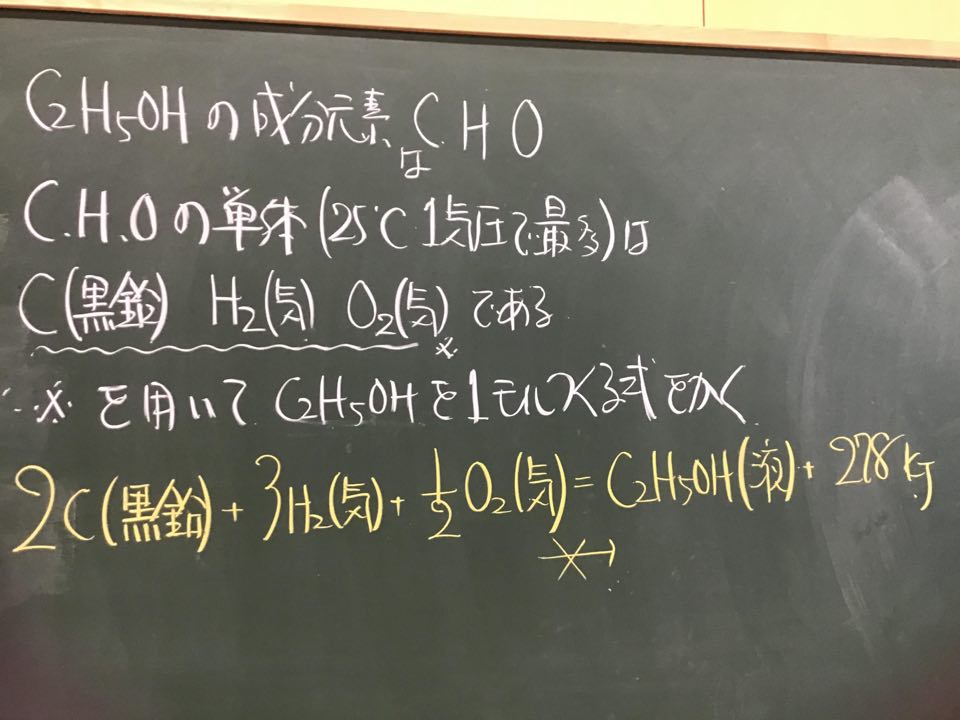 C2H5OHの成分元素はC H O
C.H.Oの単体(25℃1気圧で最多)は
C(黒鉛) H2(気) O2(気)である
※
∴※を用いてC2H5OHを1モルつくる式をかく
2C(黒鉛)+3H2(気)+1/2O2(気)=C2H5OH(液)+278kJ